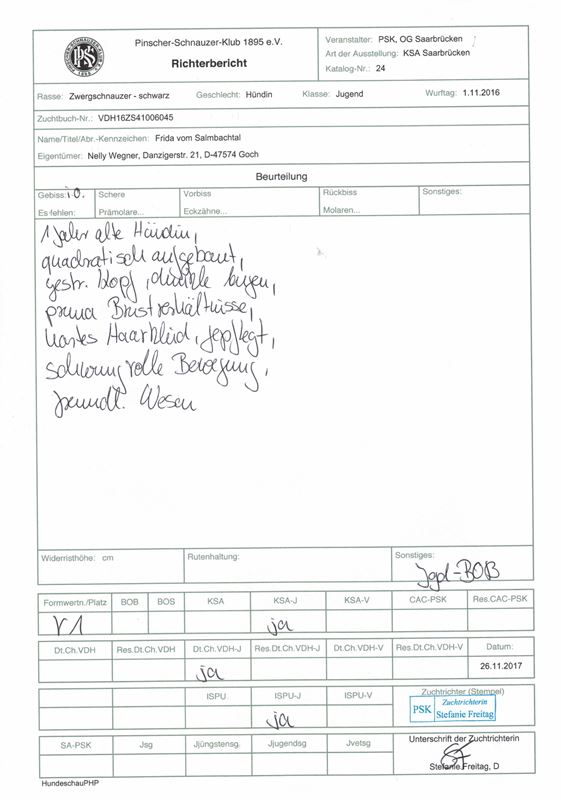 Pinscher-Schnauzer-Klub 1895 e.V.
Richterbericht
Veranstalter: PSK, OG Saarbrücken
Art der Ausstellung: KSA Saarbrücken
Katalog-Nr.: 24
Rasse: Zwergschnauzer - schwarz Geschlecht: Hündin Klasse: Jugend Wurftag: 1.11.2016
Zuchtbuch-Nr.: VDH16ZS41006045
Name/Titel/Abr.-Kennzeichen: Frida vom Salmbachtal
Eigentümer: Nelly Wegner, Danzigerstr. 21, D-47574 Goch
Beurteilung
Gebiss: i.O. Schere Vorbiss Rückbiss Sonstiges:
Es fehlen: Prämolare... Eckzähne... Molaren...
1 Jahr alte Hündin,
quadratisch aufgebaut,
gestr. Kopf, dunkle Augen,
prima Brustverhältnisse,
hartes Haarkleid, gepflegt,
schwungvolle Bewegung,
freundl. Wesen
Widerristhöhe: cm Rutenhaltung: Sonstiges:
Jgd-BOB
Formwertn./Platz BOB BOS KSA KSA-J KSA-V CAC-PSK Res.CAC-PSK
V1 ja
Dt.Ch.VDH Res.Dt.Ch.VDH Dt.Ch.VDH-J Res.Dt.Ch.VDH-J Dt.Ch.VDH-V Res.Dt.Ch.VDH-V Datum:
ja 26.11.2017
ISPU ISPU-J ISPU-V Zuchtrichter (Stempel)
ja PSK Zuchtrichterin
Stefanie Freitag
SA-PSK Jsg Jjüngstensg. Jjugendsg Jvetsg Unterschrift der Zuchtrichterin
Stefanie Freitag, D
HundeschauPHP